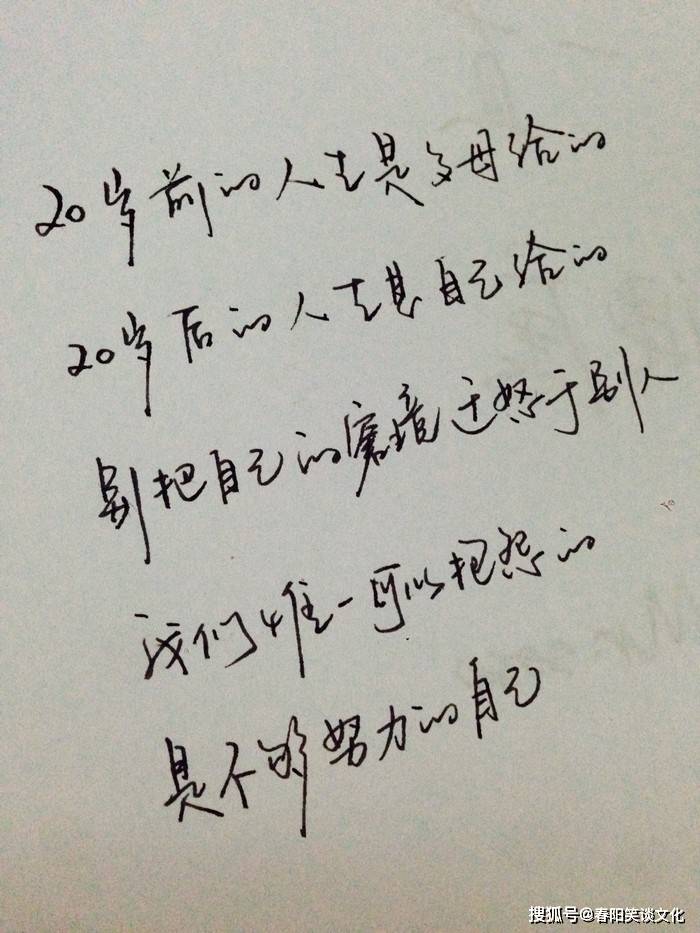 20岁前的人生是父母给的
20岁后的人生是自己给的
别把自己的窘境迁怒于别人
我们惟一可以抱怨的
是不够努力的自己
搜狐号@春阳笑谈文化